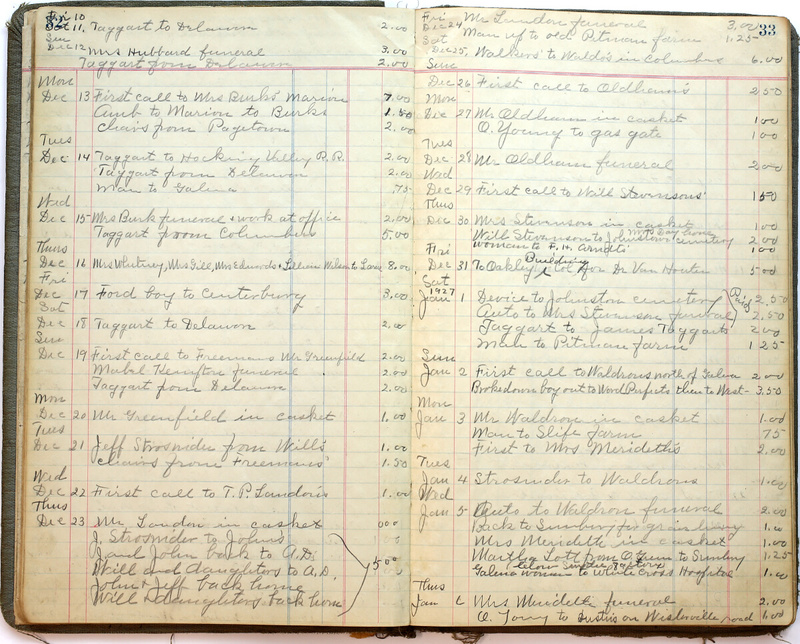 32
Fri 10
Sat 11, Taggart to Delawon 2.00
Sun
Dec 12 Mrs Hubbard funeral 3.00
Taggart from Delawon 2.00
Mon
Dec 13 First call to Mrs Burks' Marion 7.00
Amb to Marion to Burks 1.50
Chairs from Pagetown 2.00
Tues
Dec 14 Taggart to Hocking Valley R.R. 2.00
Taggart from Delawon 2.00
Man to Galena .75
Wed
Dec 15 Mrs Burk funeral + work at office 2.00
Taggart from Columbus 5.00
Thus
Dec 16 Mrs Whitney, Mrs Gill, Mrs Edwards + Lillian Wilson to 8.00
Fri
Dec 17 Ford boy to Centerburg 3.00
Sat
Dec 18 Taggart to Delawon 2.00
Sun
Dec 19 First call to Freemans Mr Greenfield 2.00
Mabel Kempton funeral 2.00
Taggart from Delawon 2.00
Mon
Dec 20 Mr Greenfield in casket 1.00
Tues
Dec 21 Jeff Strosnider from Will's 1.00
Chairs from Freemans' 1.50
Wed
Dec 22 First call to T.P. Landon's 1.00
Thus
Dec 23 Mr. Landon in casket 000
J. Strosnider to Johns
and John back to A.D.
Will and daughters to A.D. 500
John + Jeff back home
Will + daughters back home
33
Fri
Dec 24 Mr Landon funeral 3.00
Sat Man up to old Pitman farm 1.25
Dec 25, Walkers' to Waldo's in Columbus 6.00
Sun
Dec 26 First call to Oldham's 2 50
Mon
Dec 27 Mr Oldham in casket 1 00
O. Young to gas gate 1 00
Tues
Dec 28 Mr Oldham funeral 2 00
Wed
Dec 29 First call to Will Stevensons' 1 50
Thus
Dec 30 Mrs Stevenson in casket 1 00
Will Stevenson to Johnstown cemetery 2 00
Fri woman to F. H. 1 00
Building
Dec 31 To Oakley Col for Dr Van Houten 5 00
Sat
1927
Jan 1 Device to Johnston cemetery 2.50
Auto to Mrs Stevenson funeral 2.50
Paid
Taggart to James Taggarts 2 00
Man to Pitman farm 1 25
Sun
Jan 2 First call to Waldrons north of Galena 2 00
Brokedown boy out to Word Perfects then to West- 3.50
Mon
Jan 3 Mr Waldron in casket 1.00
Man to Slife farm 75
First to Mrs Merideth's 2.00
Tues
Jan 4 Strosnider to Waldrons 1.00
Wed
Jan 5 Auto to Waldron funeral 2.00
Back to Sunbury for 1.00
Mrs Merideth in casket 1.00
Martha Lott from to Sunbury 1.25
Galena woman to White Cross Hospital 1.00
Thus
Jan 6 Mrs Merideth funeral 2.00
O. to on Westerville road 1.00